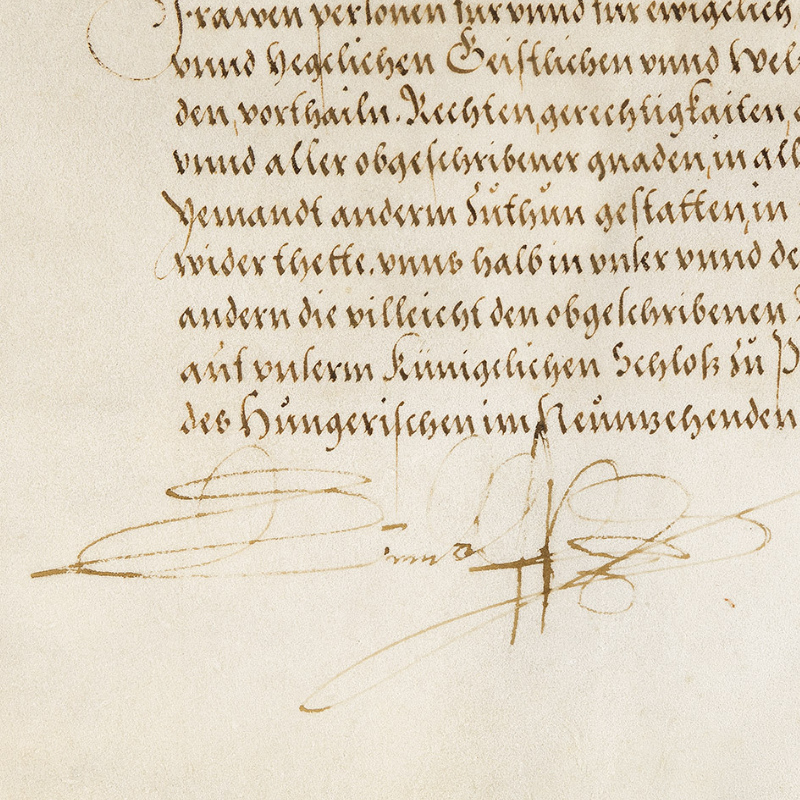 Frawen personen für vnnd für ewigelich
vnnd Yegelichen Geistlichen vnnd Wel
den, vorthailn. Rechten, gerechtigkaiten,
vnnd aller obgeschribener gnaden, in all
Yemandt anderm zůthůn gestatten, in
wider thette. vnns halb in vnser vnnd de
andern die villeicht den obgeschribenen
auf vnserm Künigclichen Schloß zů P
des Hůngerischen im Neůnzehenden